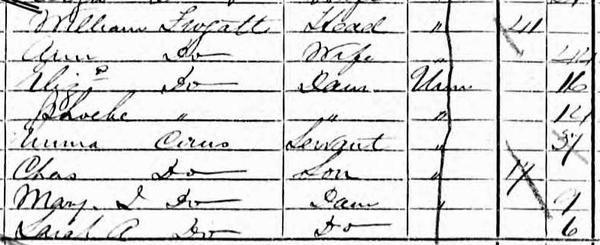 William Frogatt Head " 41
Ann Do Wife " 44
Eliz Do Daur Unm 16
Phoebe " " " 14
Emma Cirus Servant " 37
Chas Do Son " 17
Mary J Do Daur " 9
Sarah A Do Do 6